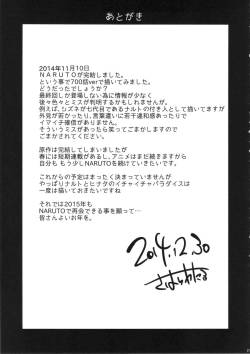 あとがき
2014年11月10日
NARUTOが完結しました。
という事で700話verで描いてみました。
どうだったでしょうか？
最終回しか登場しない為に情報が少なく
後々色々とミスが判明するかもしれませんが。
例えば、シズネが七代目であるナルトの付き人として描いてますが
外見が若かったり、言葉遣いに若干違和感あったりで
イマイチ確信がありません。
そういうミスがあったら笑ってごまかしますので
ごまかされてください。
原作は完結してしまいましたが
春には短期連載があるし、アニメはまだ続きますから
自分も もう少しNARUTOを続けていきたいです。
これからの予定はまったく決まっていませんが
やっぱりナルトとヒナタのイチャイチャパラダイスは
一度は描いておきたいですね
それでは2015年も
NARUTOで再会できる事を願って…
皆さんよいお年を。
2014.12.30